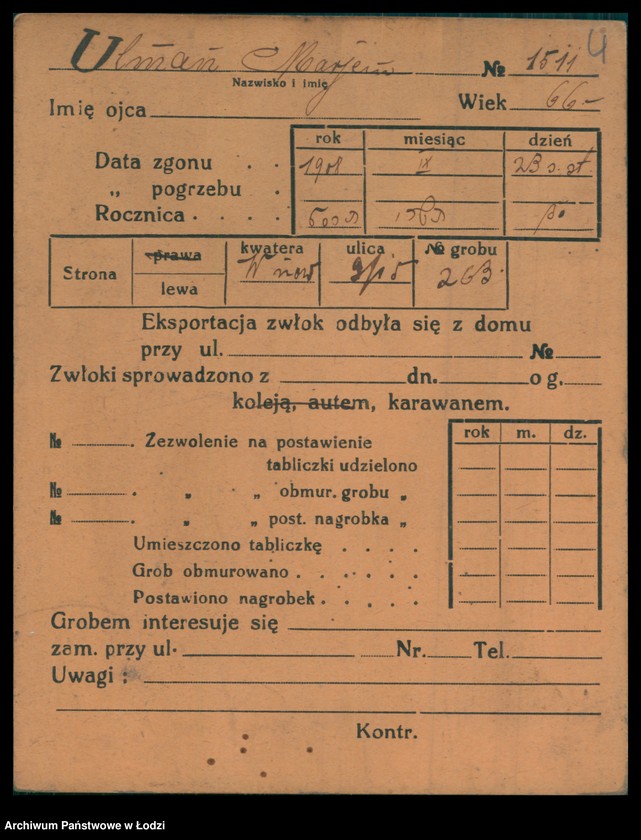 Ulman Marjem № 1511 4
Nazwisko i imię
Imię ojca Wiek 66
rok miesiąc dzień
Data zgonu . . 1908 IX 23 s. st.
„ pogrzebu .
Rocznica . . . .
Strona prawa kwatera ulica № grobu
lewa W 263
Eksportacja zwłok odbyła się z domu
przy ul. №
Zwłoki sprowadzono z dn. o g.
koleją, autem, karawanem.
rok m. dz.
№ . Zezwolenie na postawienie
tabliczki udzielono
№ . „ „ obmur. grobu „
№ . „ „ post. nagrobka „
Umieszczono tabliczkę . . . .
Grób obmurowano . . . . . .
Postawiono nagrobek . . . . .
Grobem interesuje się
zam. przy ul. Nr. Tel.
Uwagi :
Kontr.
Archiwum Państwowe w Łodzi